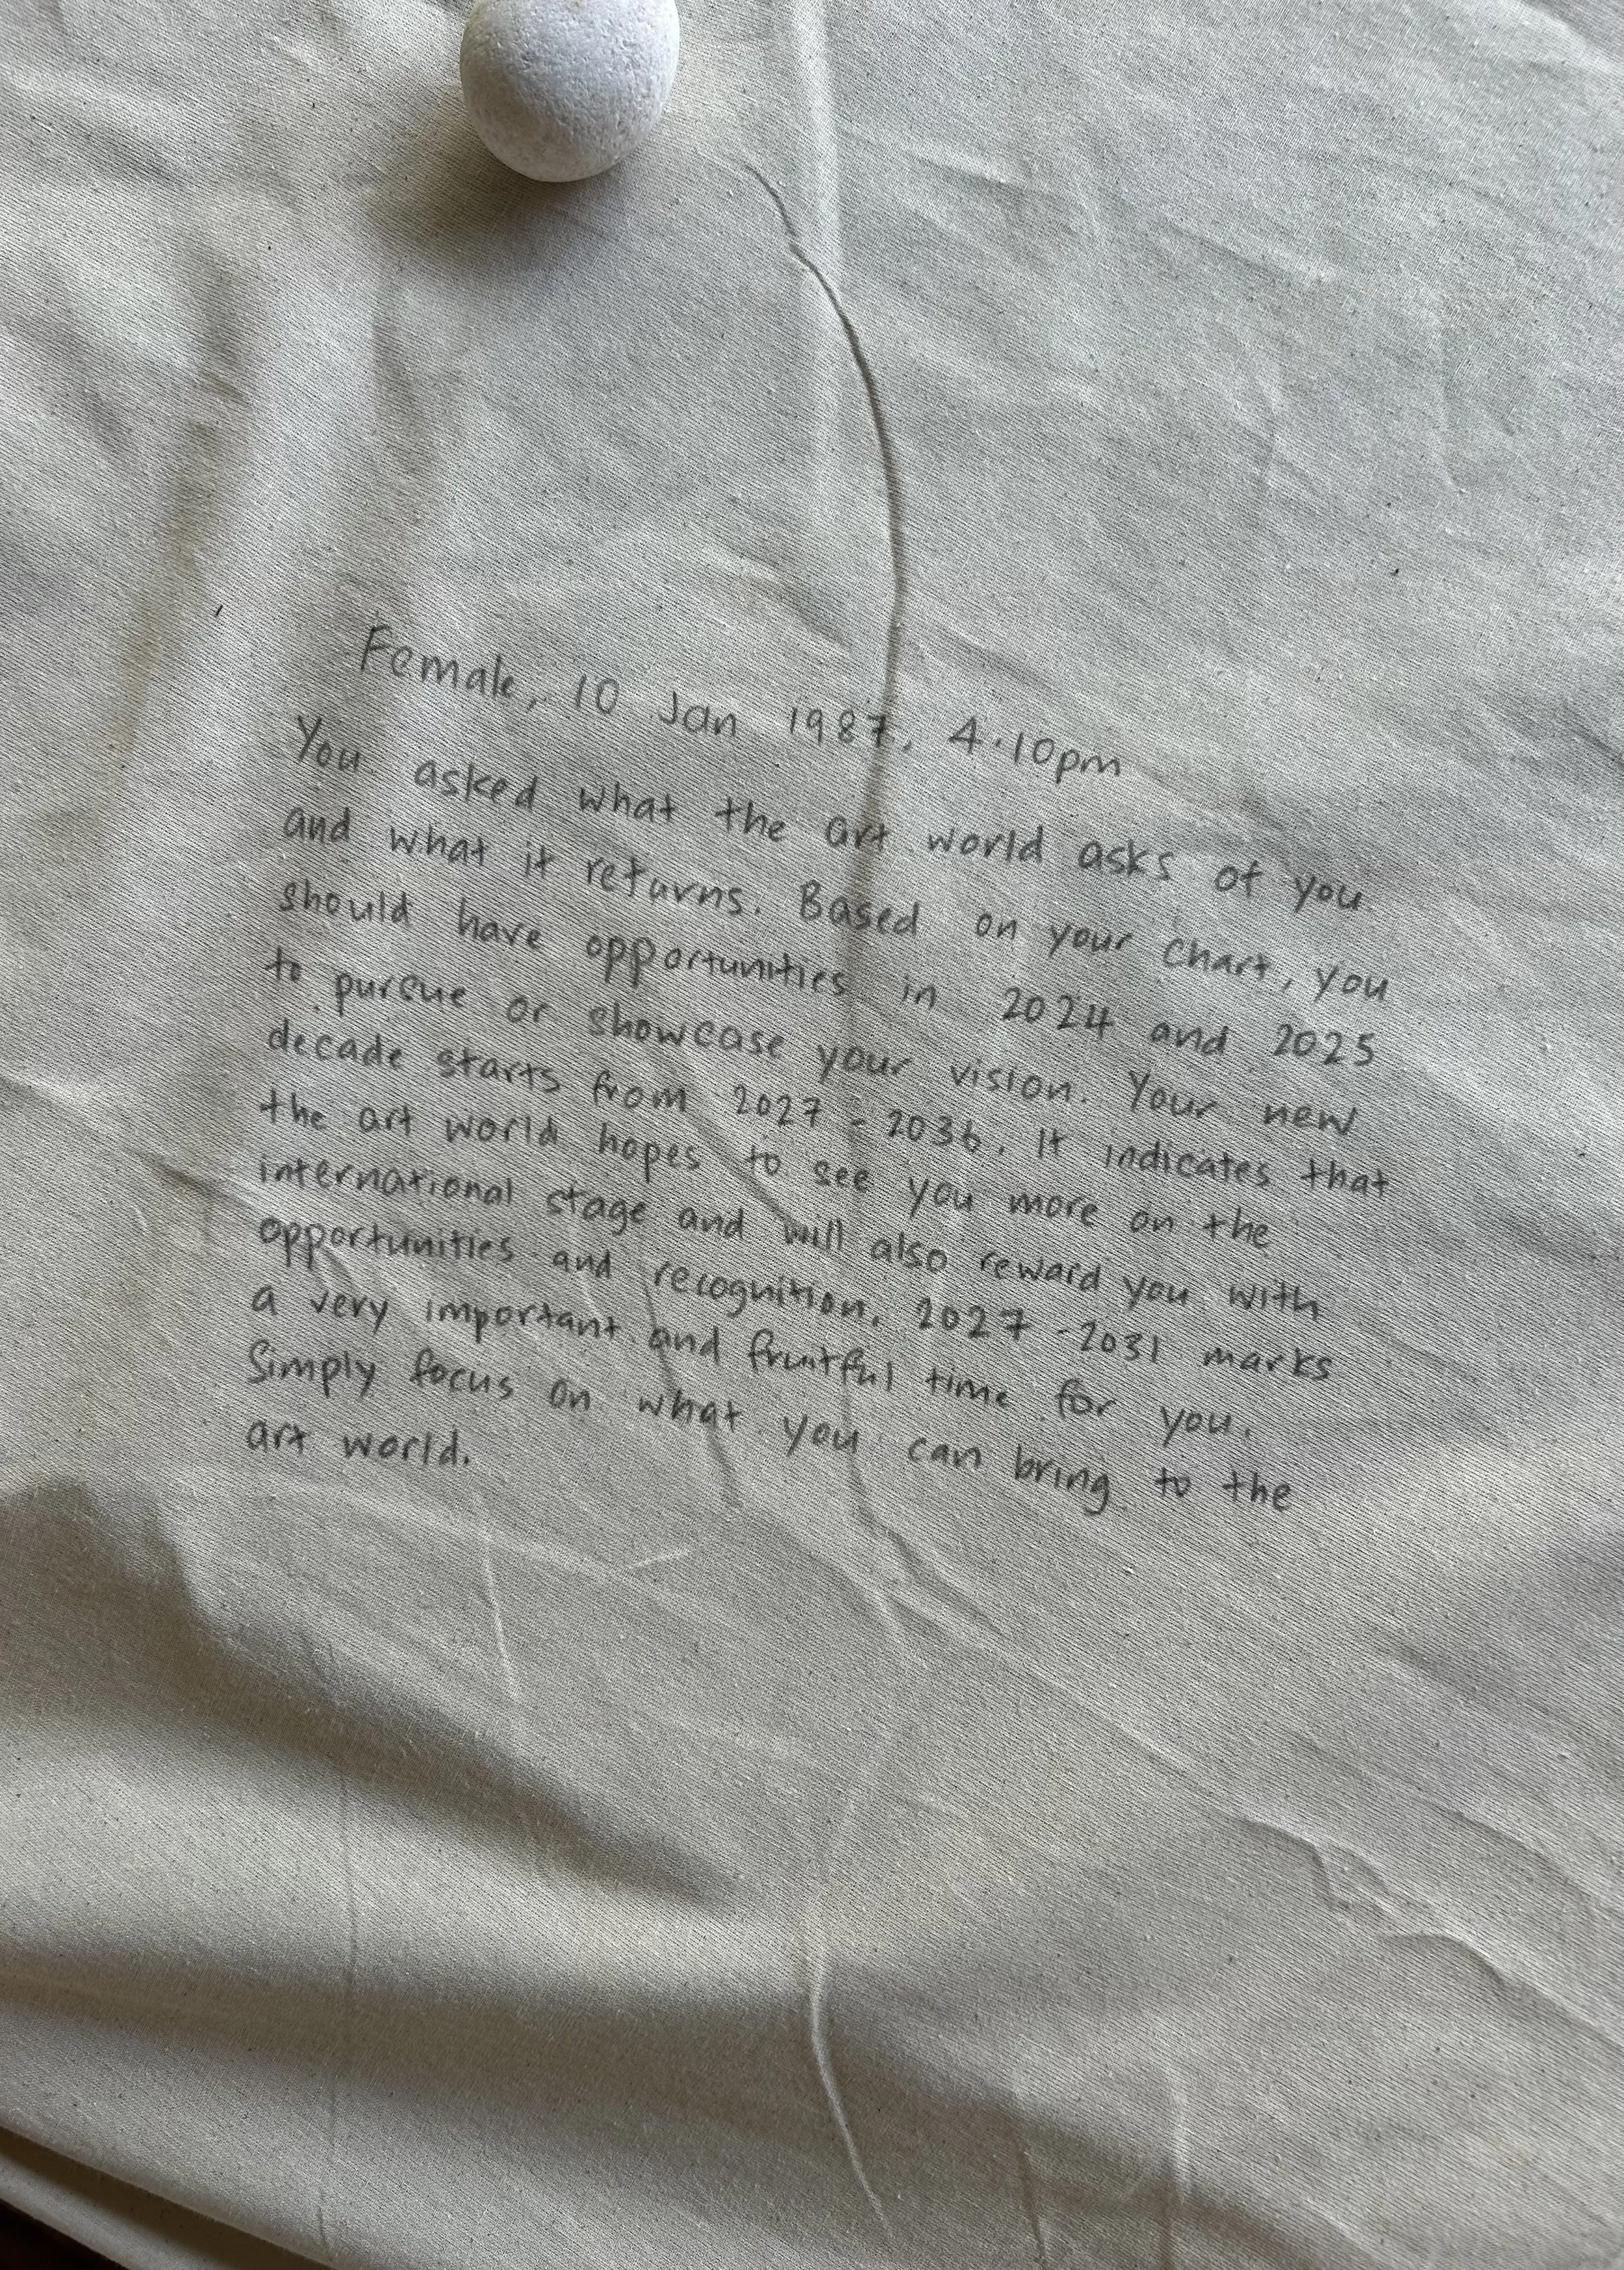 Female, 10 Jan 1987, 4.10pm
You asked what the art world asks of you
and what it returns. Based on your chart, you
should have opportunities in 2024 and 2025
to pursue or showcase your vision. Your new
decade starts from 2027 - 2036. It indicates that
the art world hopes to see you more on the
international stage and will also reward you with
opportunities and recognition. 2027 - 2031 marks
a very important and fruitful time for you.
Simply focus on what you can bring to the
art world.